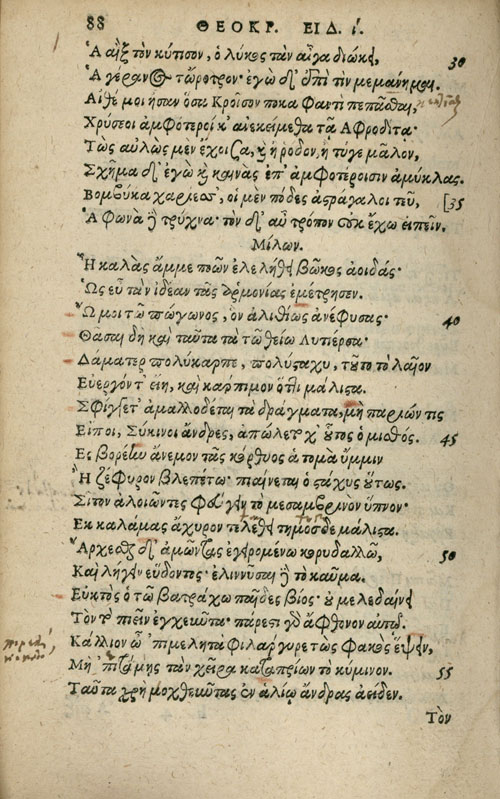 88 ΘΕΟΚΡ. ΕΙΔ. ί.
Ἁ αἲξ τὸν κύτισον, ὁ λύκος τὰν αἶγα διώκει, 30
Ἁ γέρανος τὤροτρον· ἐγὼ δ' ἐπὶ τὶν μεμάνημαι.
Αἴθέ μοι ἦσαν ὅσα Κροῖσόν ποκα φαντὶ πεπᾶσθαι,
Χρύσεοι ἀμφότεροί κ' ἀνεκείμεθα τᾷ Ἀφροδίτᾳ·
Τὼς αὐλὼς μὲν ἔχοισα, καὶ ἢ ῥόδον, ἢ τύγε μᾶλον,
Σχῆμα δ' ἐγὼ καὶ καινὰς ἐπ' ἀμφοτέροισιν ἀμύκλας.
Βομβύκα χαρίεσσ', οἱ μὲν πόδες ἀστράγαλοι τεῦ, [35
Ἁ φωνὰ δὲ τρύχνα· τὸν δ' αὖ τρόπον οὐκ ἔχω εἰπεῖν.
Μίλων.
Ἦ καλὰς ἄμμε ποῶν ἐλελήθει βῶκος ἀοιδάς·
Ὡς εὖ τὰν ἰδέαν τᾶς ἁρμονίας ἐμέτρησεν.
Ὤ μοι τῶ πώγωνος, ὃν ἀλιθίως ἀνέφυσας· 40
Θᾶσαι δὴ καὶ ταῦτα τὰ τῶ θείω Λυτιέρσα·
Δάματερ πολύκαρπε, πολύσταχυ, τοῦτο τὸ λαῖον
Εὔεργόν τ' εἴη, καὶ κάρπιμον ὅττι μάλιστα.
Σφίγγετ' ἀμαλλοδέται τὰ δράγματα, μὴ παριών τις
Εἴποι, Σύκινοι ἄνδρες, ἀπώλετο χ' οὗτος ὁ μισθός. 45
Ἐς βορέην ἄνεμον τᾶς κόρθυος ἁ τομὰ ὔμμιν
Ἢ ζέφυρον βλεπέτω· πιαίνεται ὁ στάχυς οὕτως.
Σῖτον ἀλοιῶντες φεύγειν τὸ μεσαμβρινὸν ὕπνον·
Ἐκ καλάμας ἄχυρον τελέθει τημόσδε μάλιστα.
Ἄρχεσθαι δ' ἀμῶντας ἐγειρομένω κορυδαλλῶ, 50
Καὶ λήγειν εὕδοντος· ἐλιννῦσαι δὲ τὸ καῦμα.
Εὐκτὸς ὁ τῶ βατράχω παῖδες βίος· οὐ μελεδαίνει
Τὸν τὸ πιεῖν ἐγχεῦντα· πάρεστι γὰρ ἄφθονον αὐτῷ.
Κάλλιον ὦ 'πιμελητὰ φιλάργυρε τὼς φακὸς ἕψειν,
Μὴ 'πιτάμῃς τὰν χεῖρα καταπρίων τὸ κύμινον. 55
Ταῦτα χρὴ μοχθεῦντας ἐν ἁλίῳ ἄνδρας ἀείδεν.
Τὸν